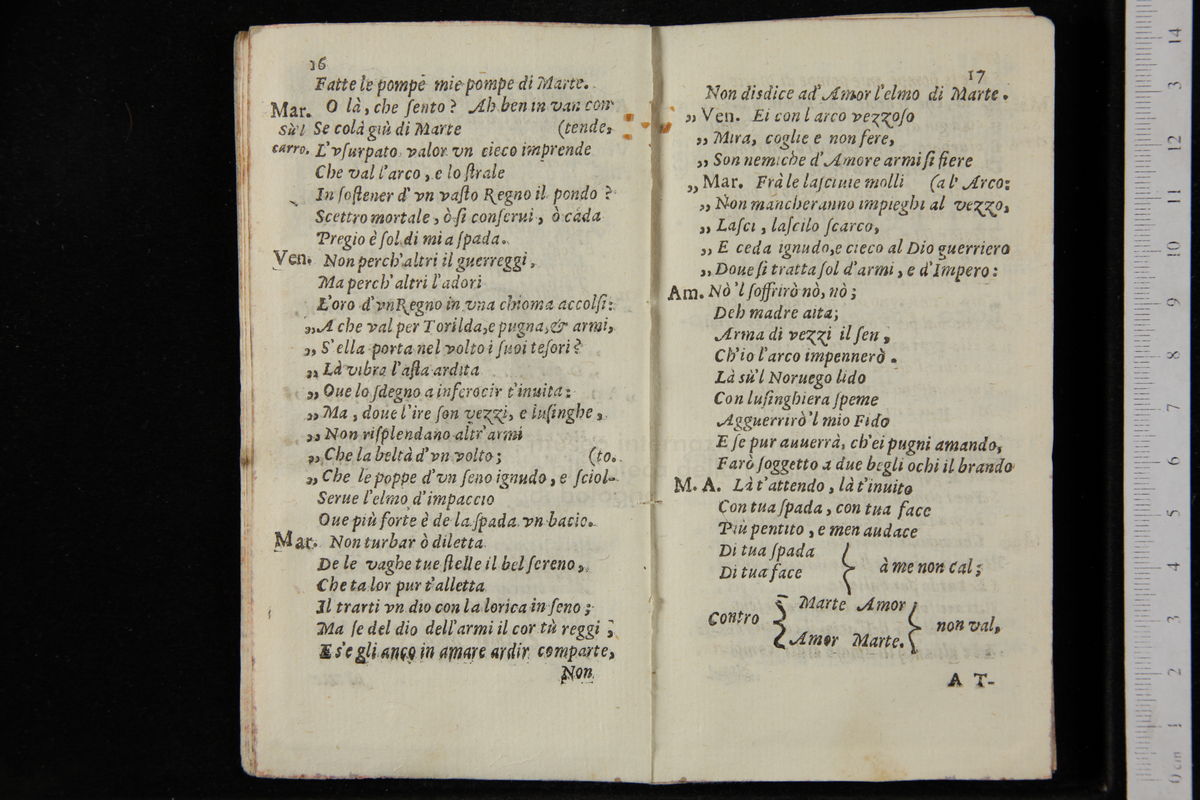 16
Fatte le pompe mie pompe di Marte.
Mar. O là, che ſento? Ah ben in van con-
sù'l Se colà giù di Marte (tende,
carro. L'vſurpato valor vn cieco imprende
Che val l'arco, e lo ſtrale
In ſoſtener d'vn vaſto Regno il pondo?
Scettro mortale, ò ſi conſerui, ò cada
Pregio è ſol di mia ſpada.
Ven. Non perch'altri il guerreggi,
Ma perch'altri l'adori
L'oro d'vn Regno in vna chioma accolſi:
„ A che val per Torilda, e pugna, & armi,
„ S'ella porta nel volto i ſuoi teſori?
„ Là vibra l'aſta ardita
„ Oue lo ſdegno a inferocir t'inuita:
„ Ma, doue l'ire ſon vezzi, e luſinghe,
„ Non riſplendano altr'armi
„ Che la beltà d'vn volto; (to.
„ Che le poppe d'vn ſeno ignudo, e ſciol-
Serue l'elmo d'impaccio
Oue più forte è de la ſpada vn bacio.
Mar. Non turbar ò diletta
De le vaghe tue ſtelle il bel ſereno,
Che talor pur t'alletta
Il trarti vn dio con la lorica in ſeno;
Ma ſe del dio dell'armi il cor tù reggi;
E s'egli anco in amare ardir comparte,
Non
17
Non disdice ad'Amor l'elmo di Marte.
„ Ven. Ei con l arco vezzoſo
„ Mira, coglie e non fere,
„ Son nemiche d'Amore armi ſi fiere
„ Mar. Frà le laſciuie molli (al' Arco:
„ Non mancheranno impieghi al vezzo,
„ Laſci, laſcilo ſcarco,
„ E ceda ignudo, e cieco al Dio guerriero
„ Doue ſi tratta ſol d'armi, e d'Impero:
Am. Nò'l ſoffrirò nò, nò;
Deh madre aita;
Arma di vezzi il ſen,
Ch'io l'arco impennerò.
Là sù'l Noruego lido
Con luſinghiera ſpeme
Agguerrirò'l mio Fido
E ſe pur auuerrà, ch'ei pugni amando,
Farò ſoggetto a due begli ochi il brando
M. A. Là t'attendo, là t'inuito
Con tua ſpada, con tua face
Più pentito, e men audace
Di tua ſpada
Di tua face } à me non cal;
Contro { Marte Amor
Amor Marte. } non val,
A T-